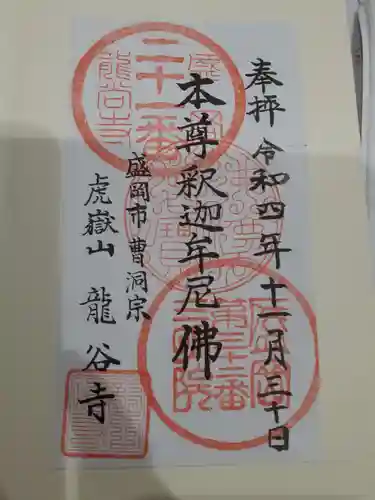 奉拝 令和四年十一月三十日
本尊釈迦牟尼佛
盛岡市 曹洞宗
虎嶽山 龍谷寺
二十一番
第三十三番